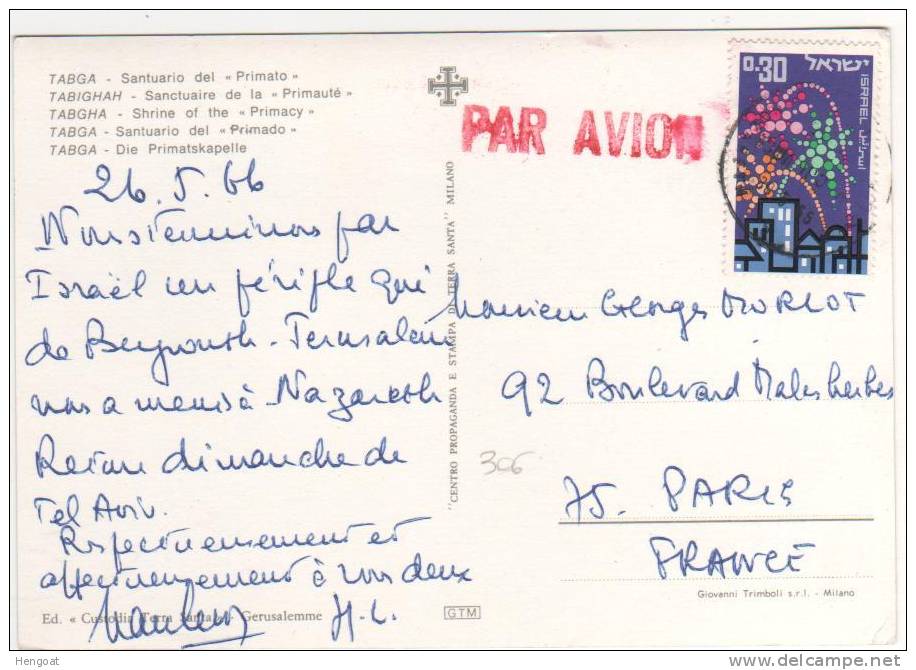 TABGA - Santuario del « Primato »
TABIGHAH - Sanctuaire de la « Primauté »
TABGHA - Shrine of the « Primacy »
TABGA - Santuario del « Primado »
TABGA - Die Primatskapelle
PAR AVION
0.30 ישראל
ISRAEL اسرائيل
26.5.66
Nous terminons par
Israël un périple qui
de Beyrouth - Jerusalem
nous a menés à Nazareth
Retour dimanche de
Tel Aviv.
Respectueusement et
affectueusement à vous deux
H.L.
Ed. « Custodia Terra Santa » - Gerusalemme
GTM
"CENTRO PROPAGANDA E STAMPA DI TERRA SANTA" MILANO
Monsieur Georges MORLOT
92 Boulevard Malesherbes
306
75. PARIS
FRANCE
Giovanni Trimboli s.r.l. - Milano
Hengoat
delcampe.net